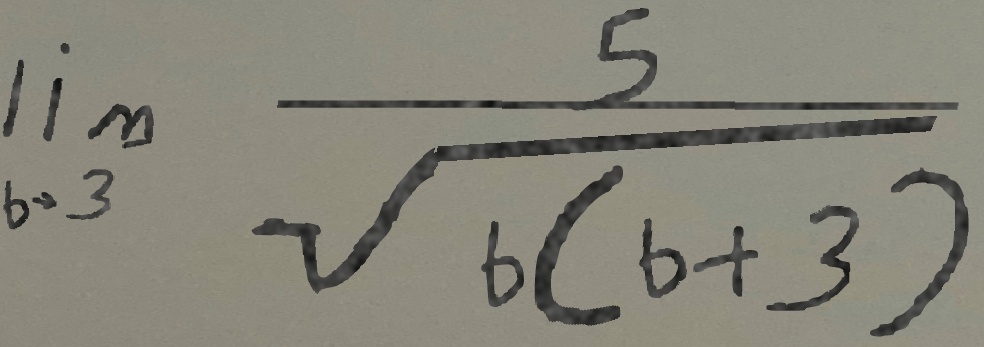 \lim_{b \to 3} \frac{5}{\sqrt{b(b+3)}}